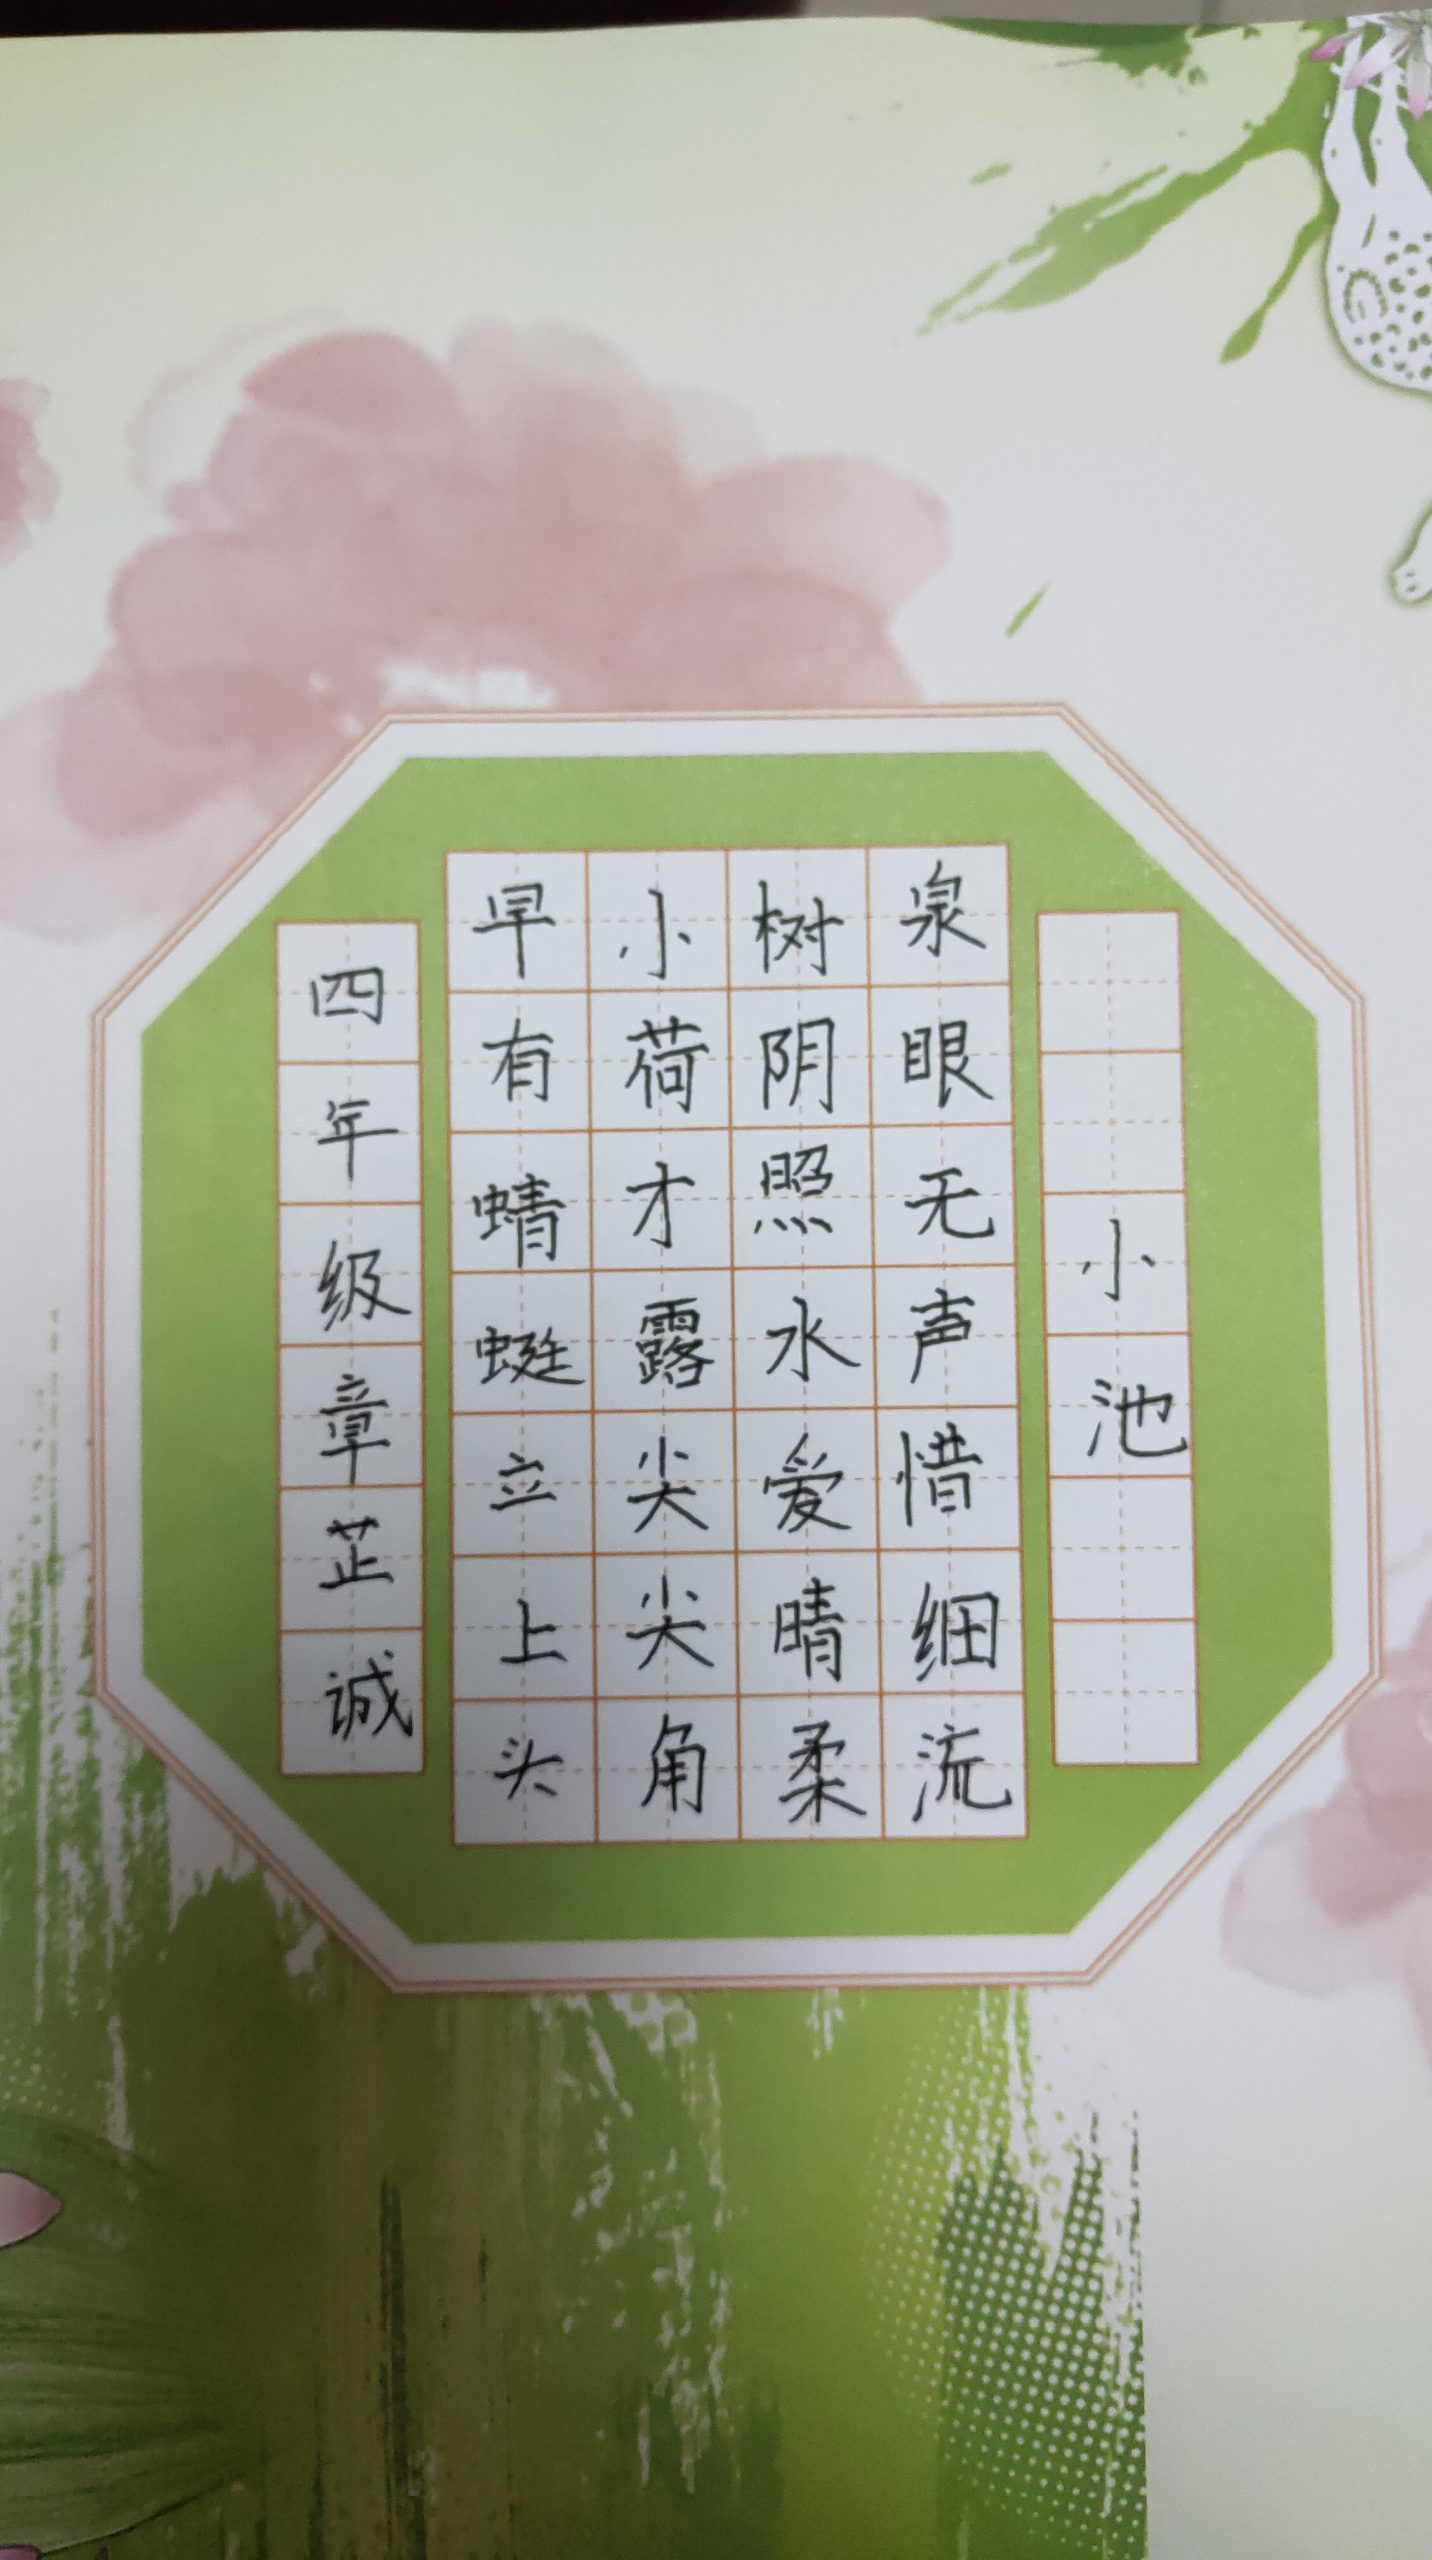 小池
泉眼无声惜细流
树阴照水爱晴柔
小荷才露尖尖角
早有蜻蜓立上头
四年级章芷诚